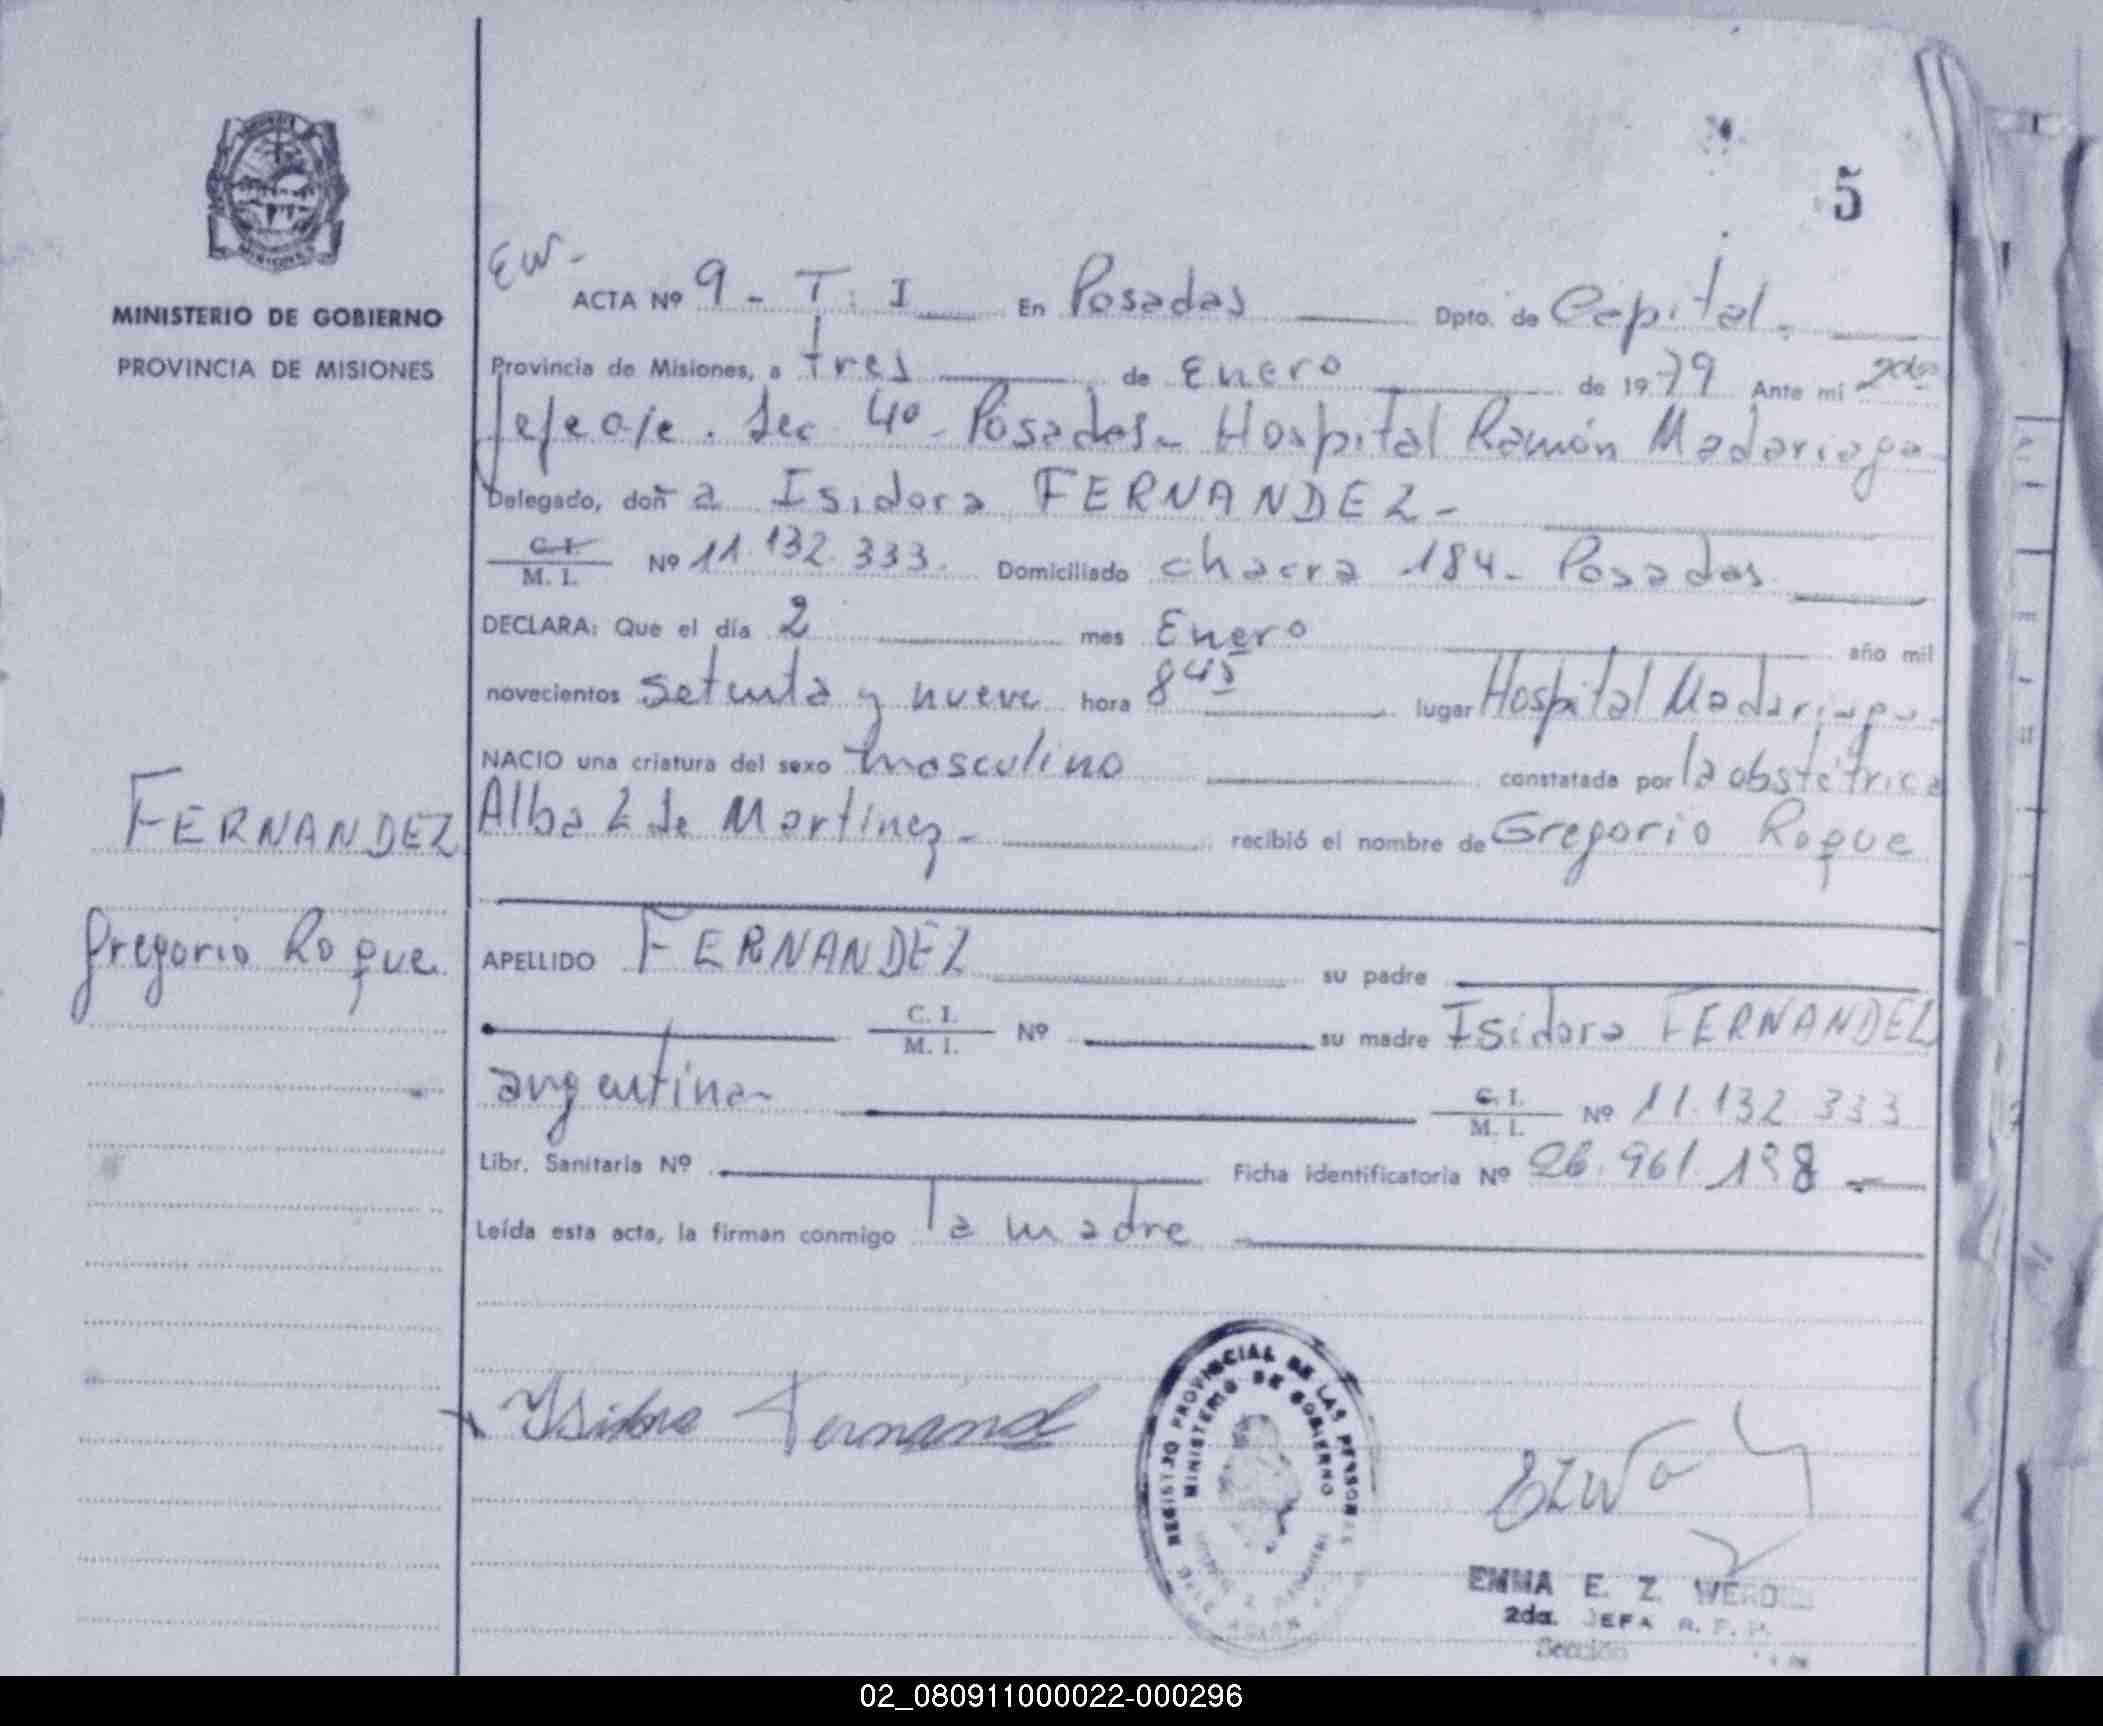 5
MINISTERIO DE GOBIERNO
PROVINCIA DE MISIONES
EW-
ACTA Nº 9 - T: I En Posadas Dpto. de Capital.
Provincia de Misiones, a tres de Enero de 1979 Ante mi 2da
Jefe a/c. Sec. 4º - Posadas - Hospital Ramón Madariaga
Delegado, doña Isidora FERNANDEZ -
C. I. / M. I. Nº 11.132.333. Domiciliado chacra 184 - Posadas
DECLARA: Que el día 2 mes Enero año mil
novecientos setenta y nueve hora 8 45 lugar Hospital Madariaga -
NACIO una criatura del sexo masculino constatada por la obstétrica
Alba Z de Martinez - recibió el nombre de Gregorio Roque
FERNANDEZ
Gregorio Roque
APELLIDO FERNANDEZ su padre
C. I. / M. I. Nº su madre Isidora FERNANDEZ
argentina - C. I. / M. I. Nº 11.132.333
Libr. Sanitaria Nº Ficha identificatoria Nº 26.961.198
Leída esta acta, la firman conmigo la madre
Isidora Fernández
REGISTRO PROVINCIAL DE LAS PERSONAS
MINISTERIO DE GOBIERNO
EMMA E. Z. WERO
2da. JEFA R. P. P.
Sección
02_080911000022-000296